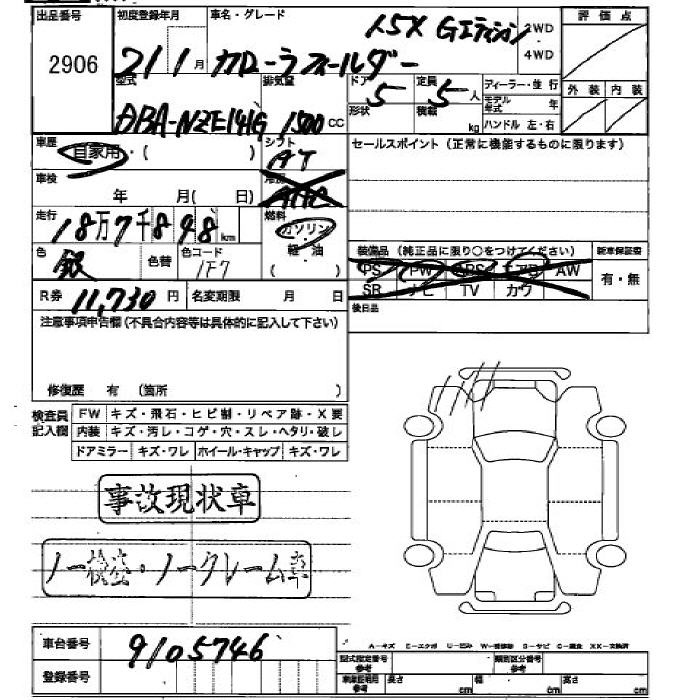 出品番号 初度登録年月 車名・グレード 1.5X Gエディション 2WD 評価点
2906 21 1月 カローラフィールダー 4WD
型式 排気量 ドア 定員 ディーラー・並行 外装 内装
DBA-NZE141G 1500 CC 5 5人 モデル年式 年
形状 積載 kg ハンドル 左・右
車歴 自家用・( ) シフト AT セールスポイント(正常に機能するものに限ります)
車検 年 月( 日) 冷房 A/C
走行 18万7千898km 燃料 ガソリン・軽油 ( )
色 銀 色替 色コード 1F7
装備品(純正品に限り○をつけてください) 新車保証書
PS PW AW 有・無
SR ナビ TV カワ
R券 11,730円 名変期限 月 日 後日品
注意事項申告欄(不具合内容等は具体的に記入して下さい)
修復歴 有 (箇所 )
検査員記入欄 FW キズ・飛石・ヒビ割・リペア跡・X要
内装 キズ・汚レ・コゲ・穴・スレ・ヘタリ・破レ
ドアミラー キズ・ワレ ホイール・キャップ キズ・ワレ
事故現状車
ノー検査・ノークレーム車
車台番号 9105746
登録番号
型式指定番号参考 類別区分番号参考
長さ cm 幅 cm 高さ cm